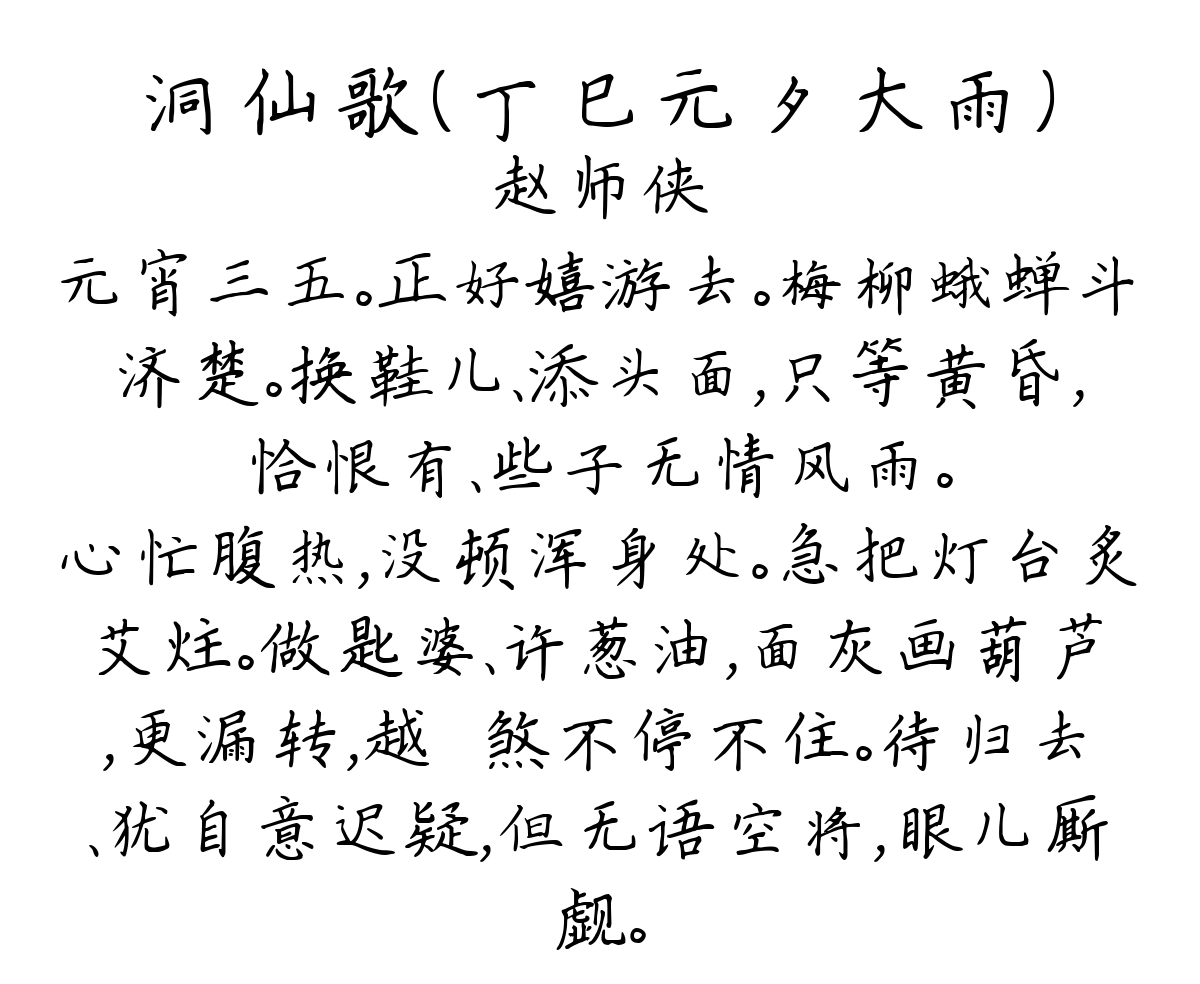 洞仙歌(丁巳元夕大雨)
赵师侠
元宵三五。正好嬉游去。梅柳蛾蝉斗
济楚。换鞋儿、添头面,只等黄昏,
恰恨有、些子无情风雨。
心忙腹热,没顿浑身处。急把灯台炙
艾炷。做匙婆、许葱油,面灰画葫芦
,更漏转,越 煞不停不住。待归去
、犹自意迟疑,但无语空将,眼儿厮
觑。